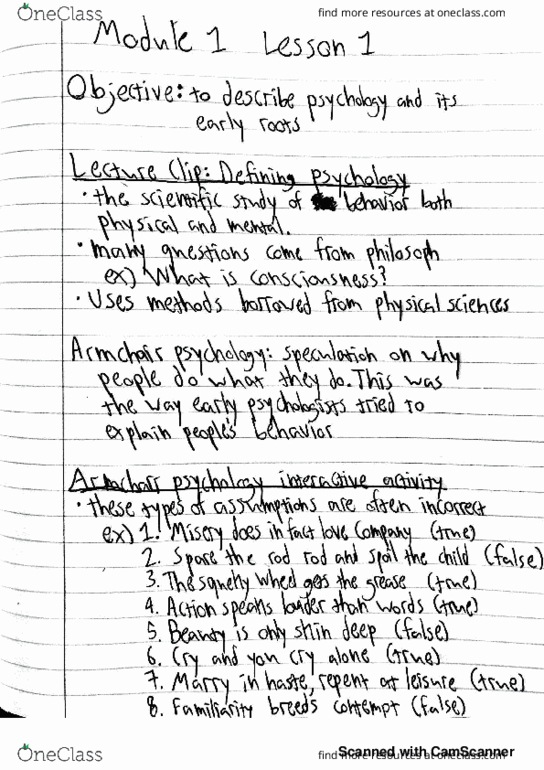 OneClass
find more resources at oneclass.com
Module 1 Lesson 1
Objective: to describe psychology and its
early roots
Lecture Clip: Defining psychology
• the scientific study of behavior both
physical and mental.
• many questions come from philosoph
ex) What is consciousness?
• Uses methods borrowed from physical sciences
Armchair psychology: speculation on why
people do what they do. This was
the way early psychologists tried to
explain people's behavior
Armchair psychology interactive activity
• these types of assumptions are often incorrect
ex) 1. Misery does in fact love company (true)
2. Spare the rod rod and spoil the child (false)
3. The squeaky wheel gets the grease (true)
4. Action speaks louder than words (true)
5. Beauty is only skin deep (false)
6. Cry and you cry alone (true)
7. Marry in haste, repent at leisure (true)
8. Familiarity breeds contempt (false)
OneClass
find more resources at oneclass.com
Scanned with CamScanner